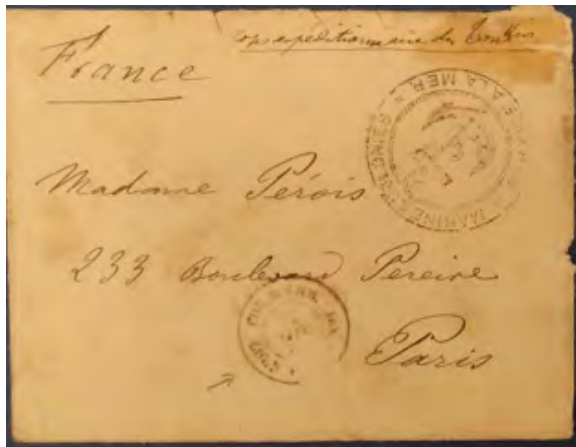 Corps expeditionnaire du Tonkin
France
MARINE
A LA MER
Madame Pérois
233 Boulevard Pereire
Paris